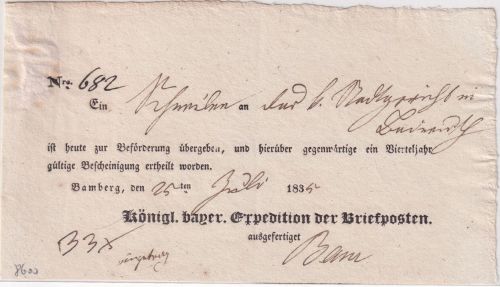 Nro. 682
Ein Schreiben an das k. Stadtgericht in
Baireuth
ist heute zur Beförderung übergeben, und hierüber gegenwärtige ein Vierteljahr
gültige Bescheinigung ertheilt worden.
Bamberg, den 25ten Juli 1835
Königl. bayer. Expedition der Briefposten.
ausgefertiget
33x
8600